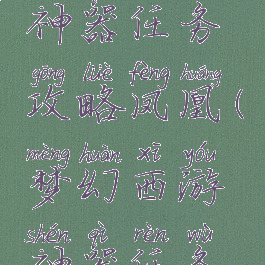 神器任务
gōng lüè fèng huáng
攻略凤凰(
mèng huàn xī yóu
梦幻西游
shén qì rèn wù
神器任务